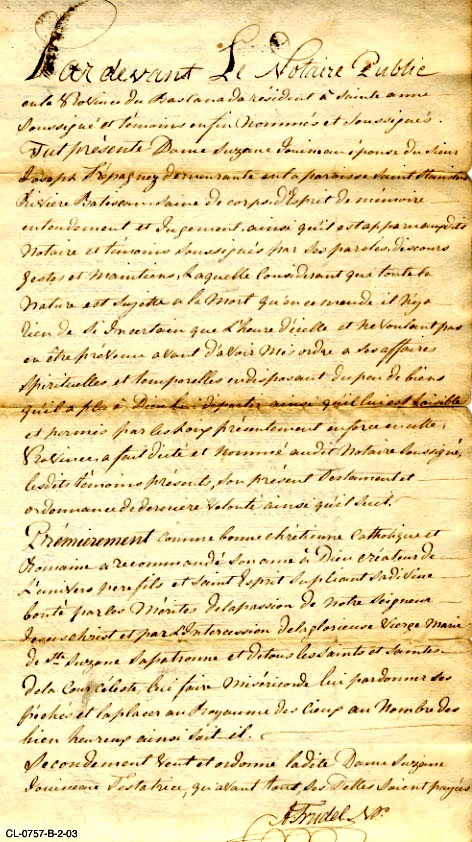 Par devant Le Notaire Public
en la Province du Bas Canada résident à Sainte anne
Soussigné et témoins enfin Nommés et Soussignés.
Fut présente Dame Suzane Jouineau épouse du Sieur
Joseph Trépagnez demeurante en la paroisse Saint Stanislas
Rivière Batescan saine de corps d'Esprit de mémoire
entendement et Jugement, ainsi qu'il est apparu audits
Notaire et témoins soussignés par ses paroles, discours
gestes et Maintiens, Laquelle Considérant que toute la
Nature est Sujette a la Mort qu'en ce monde il N'y a
rien de Si Incertain que L'heure d'icelle et Ne voulant pas
en être prévenue avant d'avoir Mis ordre a ses affaires
Spirituelles et temporelles en disposant du peu de biens
qu'il a plû à Dieu lui départir ainsi qu'il lui est Loisible
et permis par les Loix présentement en force en cette
Province, a fait dicté et Nommé audit Notaire Soussigné,
lesdits témoins présents, Son présent Testament et
ordonnance de dernière volonté ainsi qu'il Suit.
Prémièrement comme bonne chrétienne Catholique et
Romaine a recommandé Son ame à Dieu créateur de
L'univers pere fils et Saint Esprit Supliant Sa divine
bonté par les Mérites de la passion de Notre Seigneur
Jesus christ et par L'Intercession de la glorieuse Vierge Marie
de Ste Suzane Sa patronne et de tous les Saints et Saintes
de la Cour Céleste, lui faire Miséricorde lui pardonner ses
péchés et la placer au Royaume des Cieux au Nombre des
bien heureux ainsi soit il.
Secondement Veut et ordonne ladite Dame Suzane
Jouineau Testatrice, qu'avant tout Ses Dettes Soient payées
A Trudel N.P.
CL-0757-B-2-03